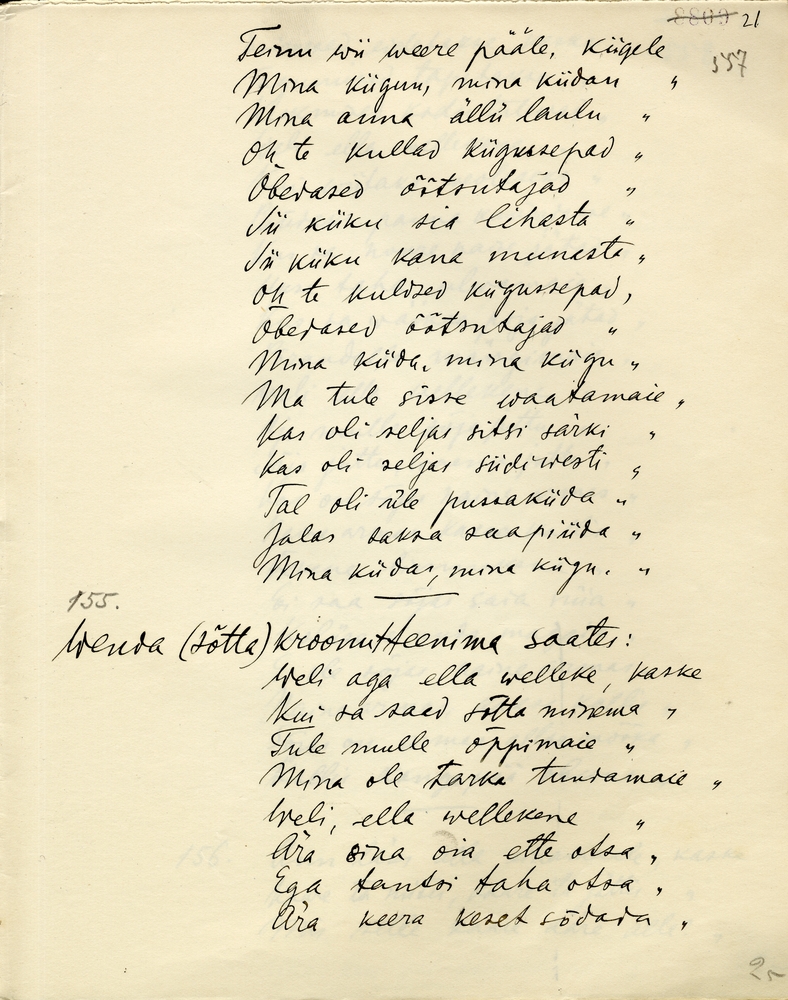 21
557
Teinu wii weere pääle, kiigele
Mina kiigun, mina kiidan "
Mina anna ällü laulu "
Oh te kullad kiigussepad "
Õbedased õõtsutajad "
Sü küku sia lihasta "
Sü küku kana munasta "
Oh te kuldsed kiigussepad,
Õbedased õõtsutajad "
Mina kiida, mina kiigu "
Ma tule sisse waatamaie "
Kas oli seljas sitsi särki "
Kas oli seljas siidiwesti "
Tal oli üle pussakiida "
Jalas saksa saapiida "
Mina kiidas, mina kiigu. "
155.
Wenda (sõtta) kroonut teenima saates:
Weli aga ella welleke, kaske
Kui sa saad sõtta minema "
Tule mulle õppimaie "
Mina ole tarka tundamaie "
Weli, ella wellekene "
Ära sina oia ette otsa "
Ega tantsi taha otsa "
Ära keera keset sõdada "